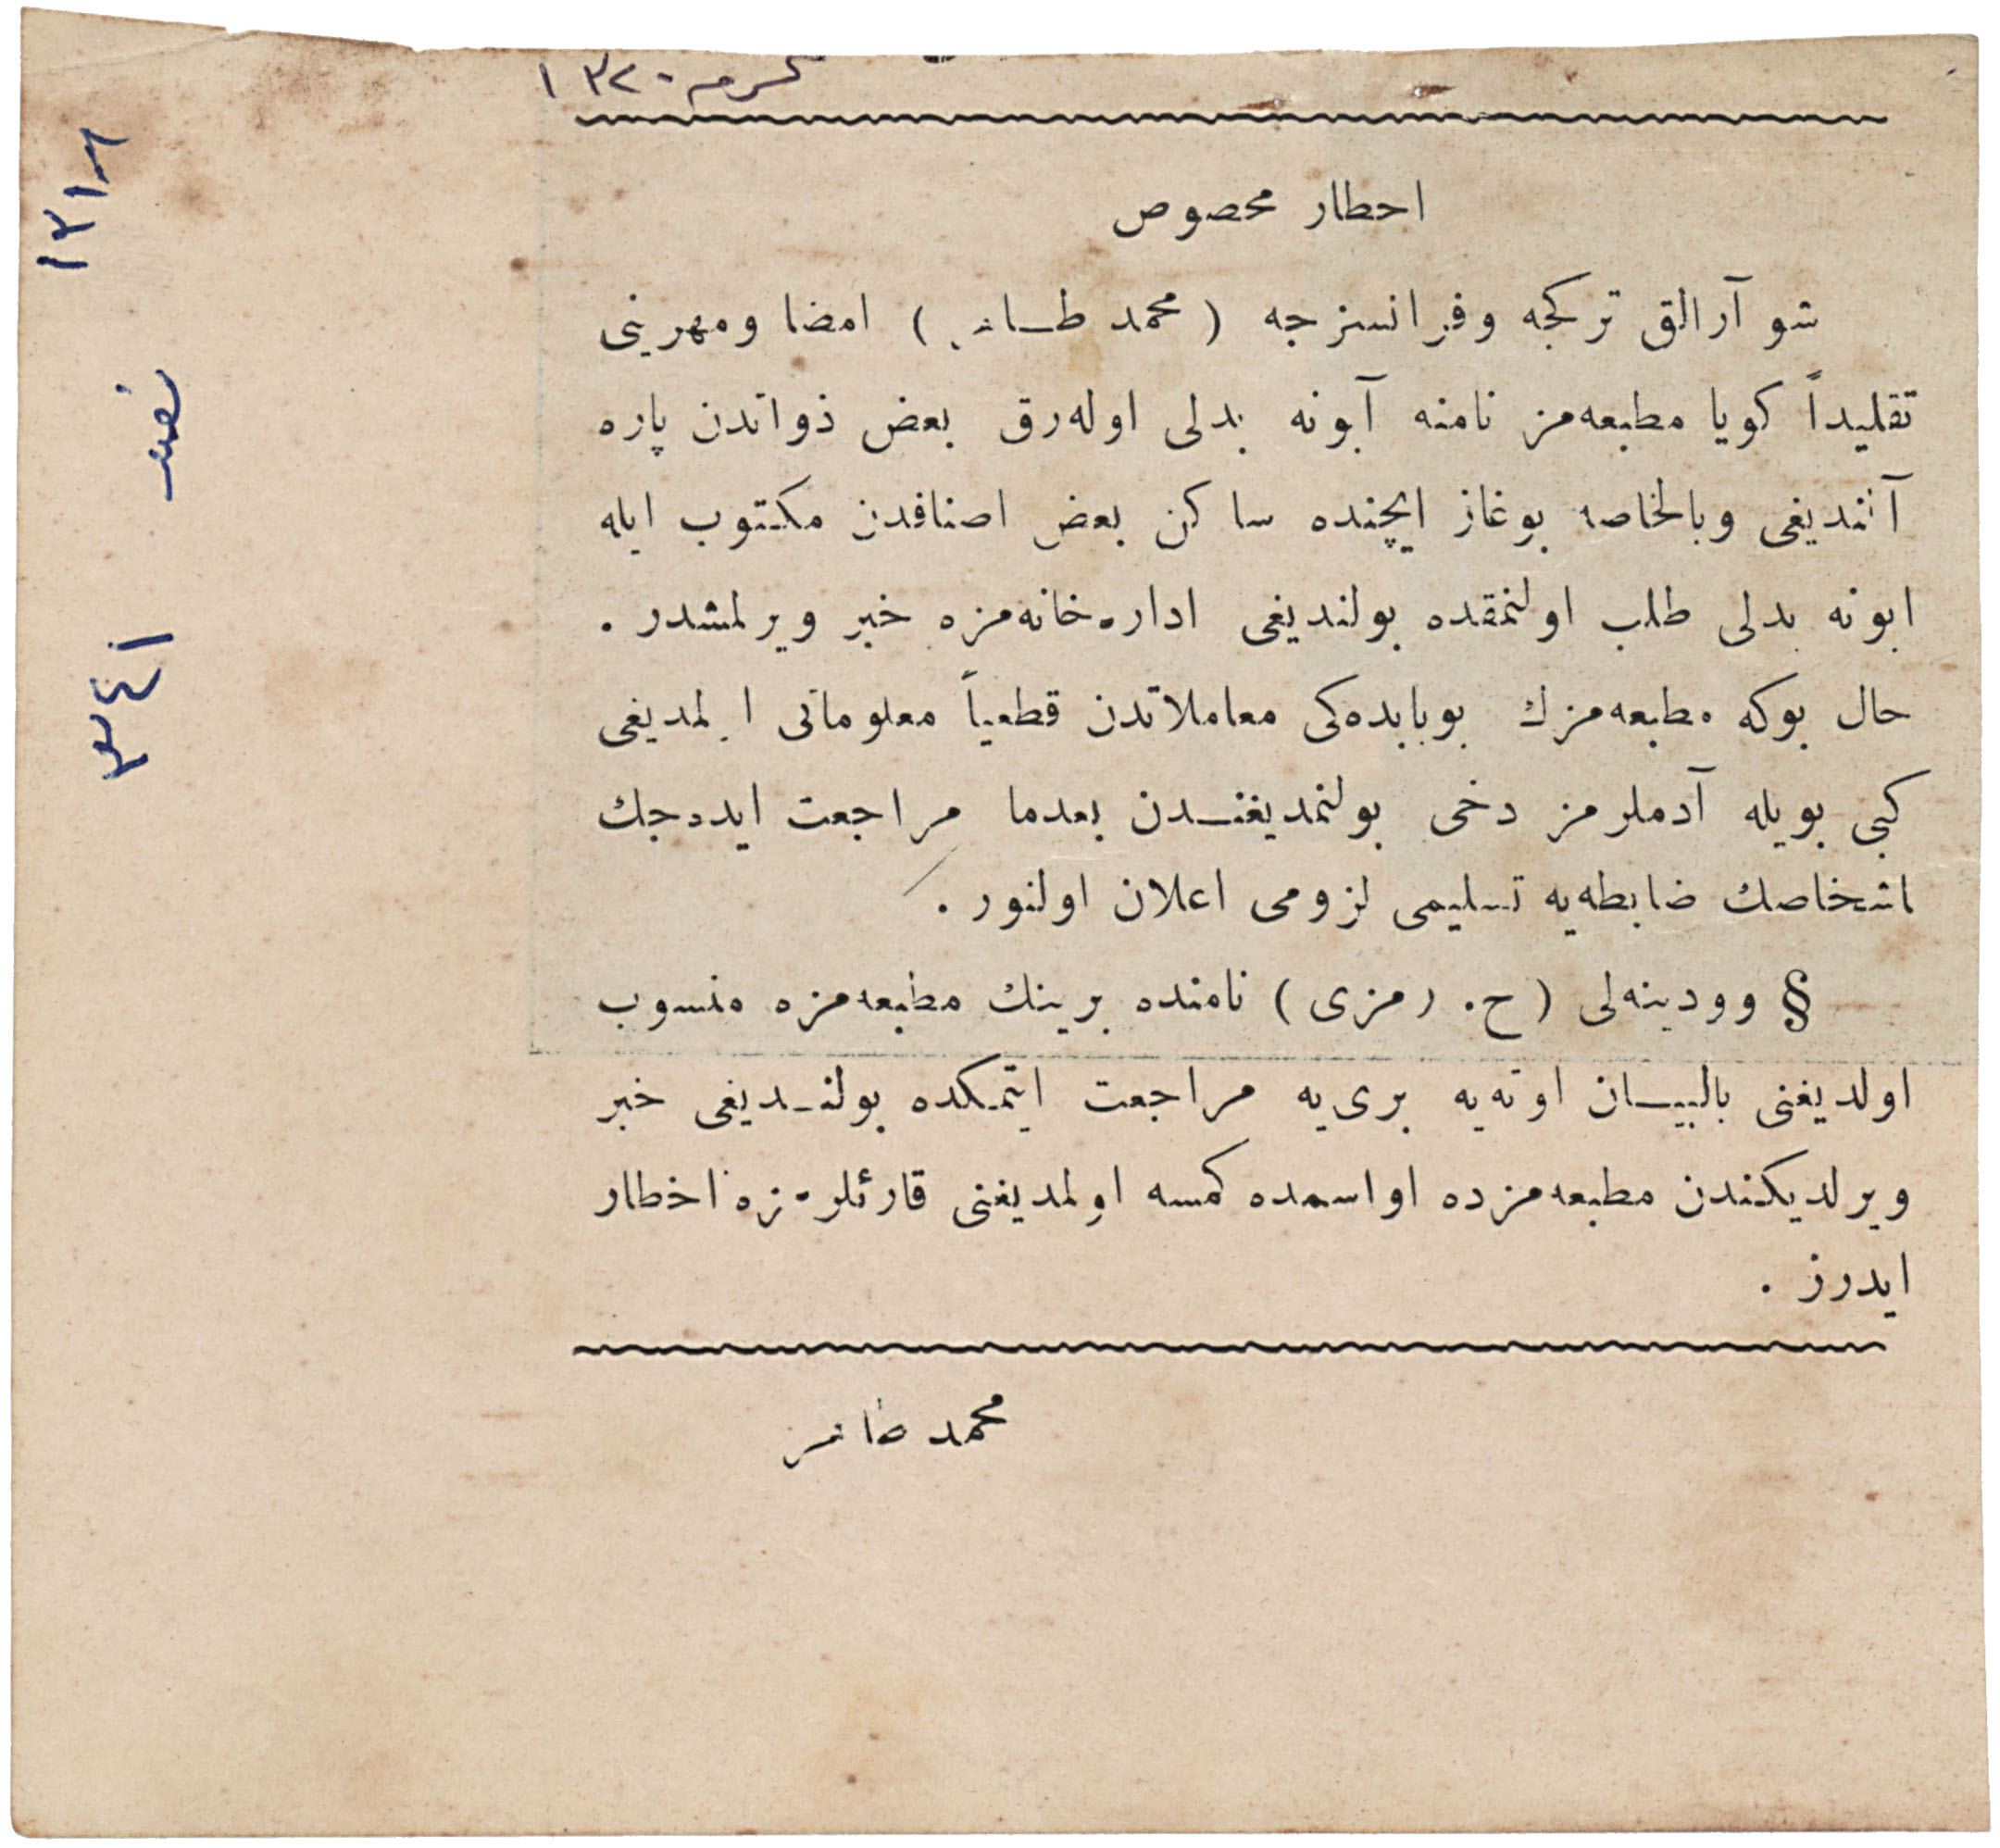 ١٣٢٠
اخطار مخصوص
شو آرالق تركجه وفرانسزجه ( محمد طاهر ) امضا ومهرينى
تقليداً كويا مطبعه‌مز نامنه آبونه بدلى اوله‌رق بعض ذواتدن پاره
آلنديغى وبالخاصه بوغاز ايچنده ساكن بعض اصنافدن مكتوب ايله
ابونه بدلى طلب اولنمقده بولنديغى اداره‌خانه‌مزه خبر ويرلمشدر .
حال بوكه مطبعه‌مزك بوبابده‌كى معاملاتدن قطعياً معلوماتى اولمديغى
كبى بويله آدملرمز دخى بولنمديغندن بعدما مراجعت ايده‌جك
اشخاصك ضابطه‌يه تسليمى لزومى اعلان اولنور .
§ وودينه‌لى ( ح. رمزى ) نامنده برينك مطبعه‌مزه منسوب
اولديغنى بالبيان اوته‌يه برى‌يه مراجعت ايتمكده بولنديغى خبر
ويرلديكندن مطبعه‌مزده اواسمده كمسه اولمديغنى قارئلرمزه اخطار
ايدرز .
محمد طاهر